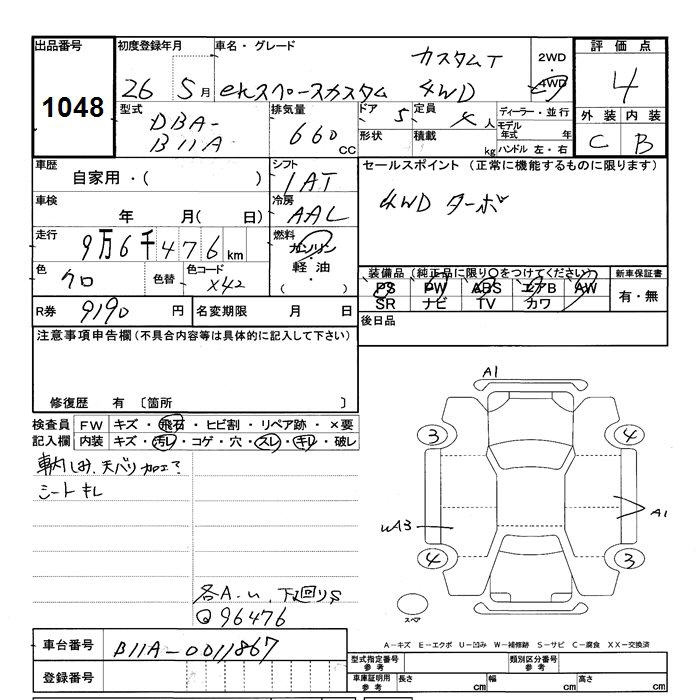 出品番号 初度登録年月 車名・グレード 評価点
1048 カスタムT 2WD
26 5月 ekスペースカスタム 4WD 4WD 4
型式 排気量 ドア 5 定員 4人 ディーラー・並行 外装 内装
DBA- 660 CC 形状 積載 kg モデル年式 年 C B
B11A ハンドル 左・右
車歴 シフト セールスポイント (正常に機能するものに限ります)
自家用・( ) IAT
車検 冷房 4WD ターボ
年 月( 日) AAC
走行 燃料
9万6千476km ガソリン
色 クロ 色替 色コード X42 軽油・( ) 装備品(純正品に限り○をつけてください) 新車保証書
PS PW ABS エアB AW 有・無
SR ナビ TV カワ
R券 9190 円 名変期限 月 日 後日品
注意事項申告欄(不具合内容等は具体的に記入して下さい)
修復歴 有 〔箇所 〕
検査員 FW キズ・飛石・ヒビ割・リペア跡・×要
記入欄 内装 キズ・汚レ・コゲ・穴・スレ・キレ・破レ
車内しみ、天バリ加工て
シートキレ
A1
3 4
A1
uA3
4 3
スペア
各A.u、下回りS
Q96476
A−キズ E−エクボ U−凹み W−補修跡 S−サビ C−腐食 XX−交換済
車台番号 B11A-0011867
登録番号
型式指定番号 参考 類別区分番号 参考
車庫証明用 参考 長さ cm 幅 cm 高さ cm